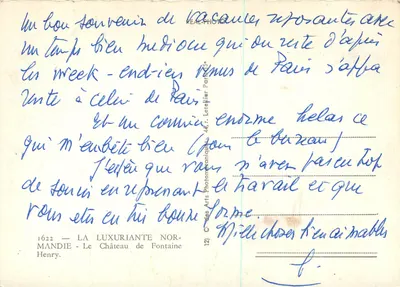 Un bon souvenir de vacances reposantes avec
un temps bien mediocre qui du reste d'après
les week-end-iens venus de Paris s'appa
rente à celui de Paris
Et un courrier enorme helas ce
qui m'embête bien (pour le bureau)
J'espère que vous n'avez pas eu trop
de soucis en reprenant le travail et que
vous etes en très bonne forme.
Mille choses bien aimables
1622 — LA LUXURIANTE NOR-
MANDIE - Le Château de Fontaine
Henry.